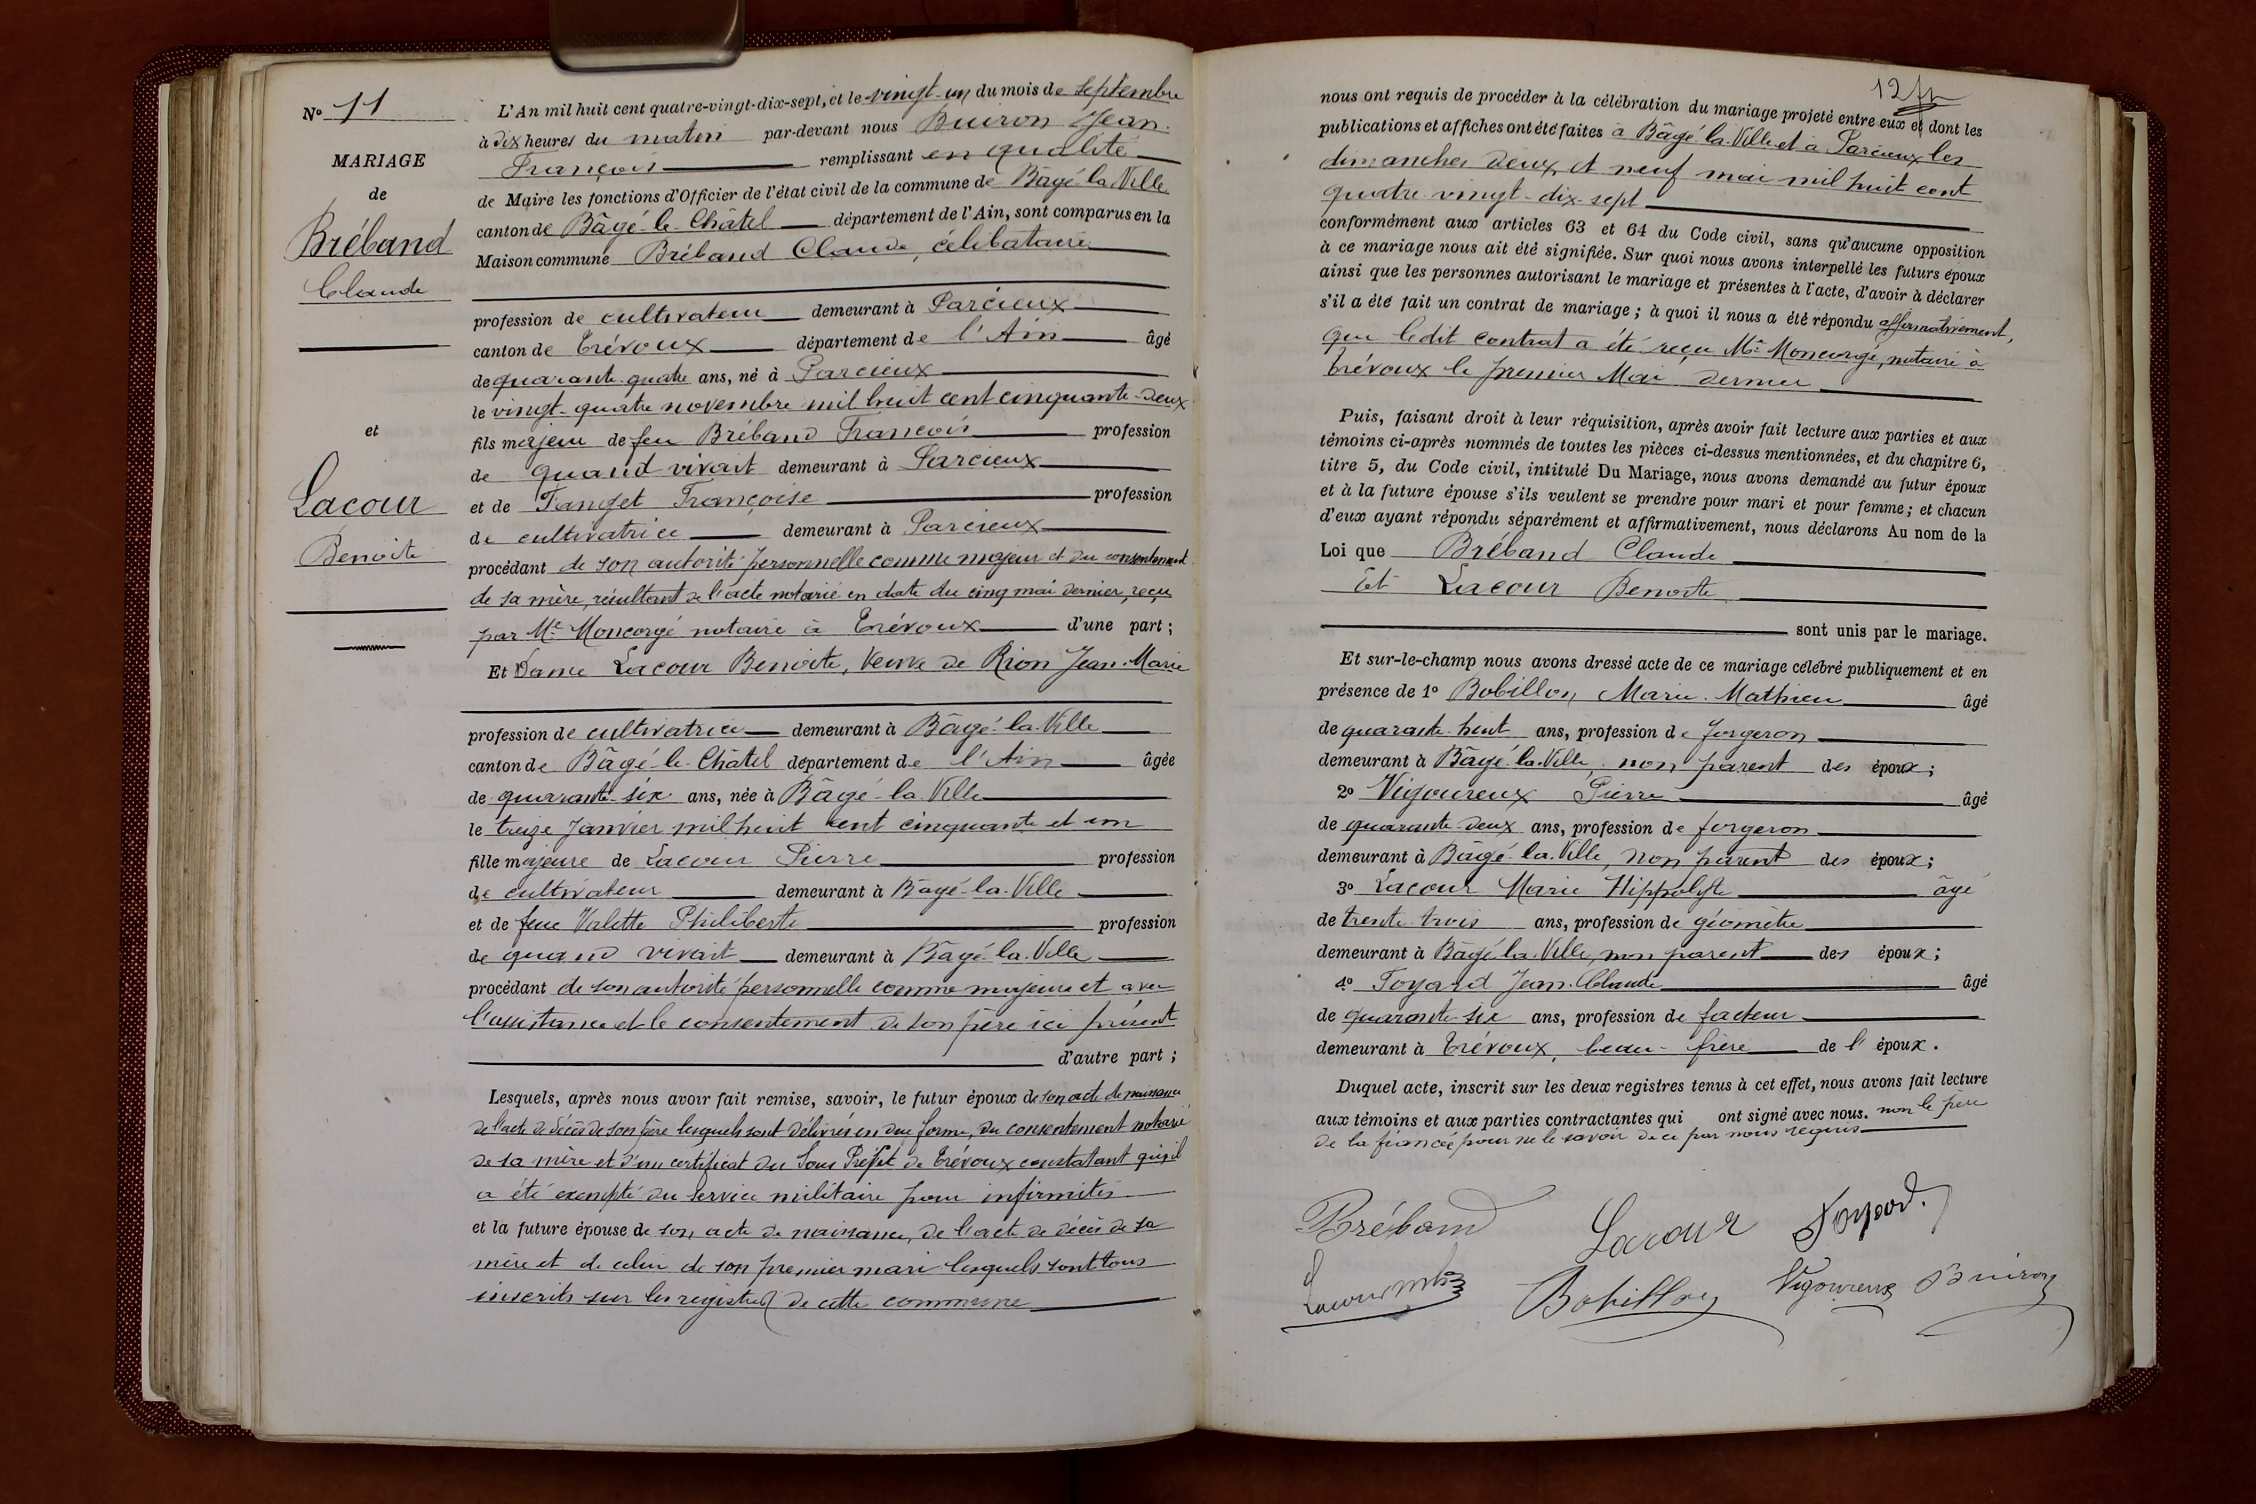 N° 11
MARIAGE
de
Bréband
Claude
et
Lacour
Benoite
L'An mil huit cent quatre-vingt-dix-sept, et le vingt-un du mois de septembre
à dix heures du matin par-devant nous Buiron Jean-
François remplissant en qualité
de Maire les fonctions d'Officier de l'état civil de la commune de Bâgé-la-Ville
canton de Bâgé-le-Châtel département de l'Ain, sont comparus en la
Maison commune Bréband Claude, célibataire
profession de cultivateur demeurant à Parcieux
canton de Trévoux département de l'Ain âgé
de quarante-quatre ans, né à Parcieux
le vingt-quatre novembre mil huit cent cinquante-deux
fils majeur de feu Bréband François profession
de quand vivait demeurant à Parcieux
et de Tanget Françoise profession
de cultivatrice demeurant à Parcieux
procédant de son autorité personnelle comme majeur et du consentement
de sa mère, résultant de l'acte notarié en date du cinq mai dernier, reçu
par Me Moncorgé notaire à Trévoux d'une part;
Et Dame Lacour Benoite, Veuve de Rion Jean-Marie
profession de cultivatrice demeurant à Bâgé-la-Ville
canton de Bâgé-le-Châtel département de l'Ain âgée
de quarante-six ans, née à Bâgé-la-Ville
le treize Janvier mil huit cent cinquante et un
fille majeure de Lacour Pierre profession
de cultivateur demeurant à Bâgé-la-Ville
et de feue Valette Philiberte profession
de quand vivait demeurant à Bâgé-la-Ville
procédant de son autorité personnelle comme majeure et avec
l'assistance et le consentement de son père ici présent
d'autre part;
Lesquels, après nous avoir fait remise, savoir, le futur époux de son acte de naissance
de l'acte de décès de son père lesquels sont délivrés en due forme, du consentement notarié
de sa mère et d'un certificat du Sous Préfet de Trévoux constatant qu'il
a été exempté du service militaire pour infirmités
et la future épouse de son acte de naissance, de l'acte de décès de sa
mère et de celui de son premier mari lesquels sont tous
inscrits sur les registres de cette commune
12
nous ont requis de procéder à la célébration du mariage projeté entre eux et dont les
publications et affiches ont été faites à Bâgé-la-Ville et à Parcieux les
dimanches deux et neuf mai mil huit cent
quatre-vingt-dix-sept
conformément aux articles 63 et 64 du Code civil, sans qu'aucune opposition
à ce mariage nous ait été signifiée. Sur quoi nous avons interpellé les futurs époux
ainsi que les personnes autorisant le mariage et présentes à l'acte, d'avoir à déclarer
s'il a été fait un contrat de mariage; à quoi il nous a été répondu affirmativement,
que ledit contrat a été reçu Me Moncorgé, notaire à
Trévoux le premier Mai dernier
Puis, faisant droit à leur réquisition, après avoir fait lecture aux parties et aux
témoins ci-après nommés de toutes les pièces ci-dessus mentionnées, et du chapitre 6,
titre 5, du Code civil, intitulé Du Mariage, nous avons demandé au futur époux
et à la future épouse s'ils veulent se prendre pour mari et pour femme; et chacun
d'eux ayant répondu séparément et affirmativement, nous déclarons Au nom de la
Loi que Bréband Claude
Et Lacour Benoite
sont unis par le mariage.
Et sur-le-champ nous avons dressé acte de ce mariage célébré publiquement et en
présence de 1° Bobillon Marie-Mathieu âgé
de quarante-huit ans, profession de forgeron
demeurant à Bâgé-la-Ville, non parent des époux;
2° Vigoureux Pierre âgé
de quarante-deux ans, profession de forgeron
demeurant à Bâgé-la-Ville, non parent des époux;
3° Lacour Marie Hippolyte âgé
de trente-trois ans, profession de géomètre
demeurant à Bâgé-la-Ville, non parent des époux;
4° Foyard Jean-Claude âgé
de quarante-six ans, profession de facteur
demeurant à Trévoux, beau-frère de l'époux.
Duquel acte, inscrit sur les deux registres tenus à cet effet, nous avons fait lecture
aux témoins et aux parties contractantes qui ont signé avec nous. non le père
de la fiancée pour ne le savoir de ce par nous requis
Bréband Lacour Foyard.
Lacour Bobillon Vigoureux Buiron